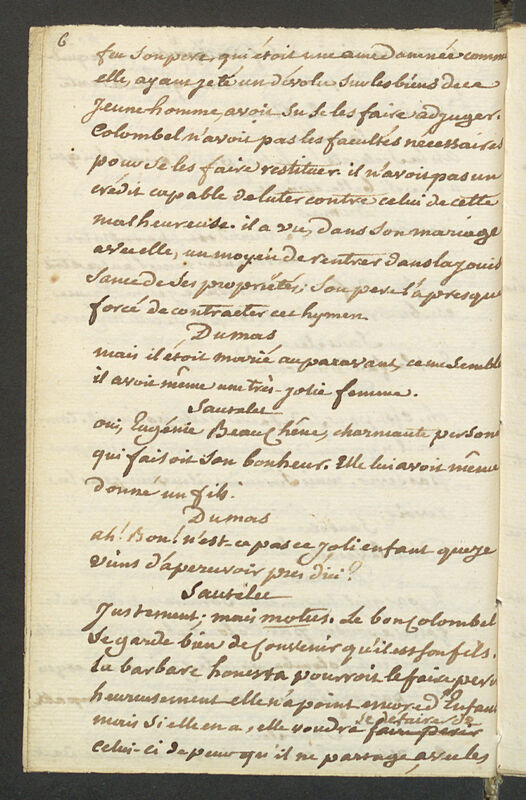 6
feu son pere, qui étoit une ame damnée comme
elle, ayant jeté un dévolu sur les biens de ce
jeune homme, avoit su se les faire adjuger.
Colombel n'avoit pas les facultés nécessaires
pour se les faire restituer. il n'avoit pas un
crédit capable de luter contre celui de cette
malheureuse. il a vu, dans son mariage
avec elle, un moyen de rentrer dans la jouis
sance de ses propriétés; son pere l'a presque
forcé de contracter cet hymen
Dumas
mais il étoit marié auparavant, ce me semble
il avoit même une très-jolie femme.
Sautelet
oui, Eugénie Beauchêne, charmante person
qui faisoit son bonheur. Elle lui avoit même
donné un fils.
Dumas
ah! Bon! n'est-ce pas ce joli enfant que je
viens d'apercevoir près d'ici?
Sautelet
Justement; mais motus. Le bon Colombel
se garde bien de convenir qu'il est son fils.
la barbare honesta pourroit le faire péri
heureusement elle n'a point encore d'Enfant
se défaire de
mais si elle en a, elle voudra faire périr
celui-ci de peur qu'il ne partage, avec les